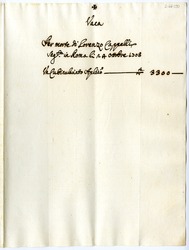 Vaca
Per morte di Lorenzo Cappelli
Seg.to in Roma li 24 Ottobre 1708
Un Cubiculariato Apłico — ∆ 3300 —